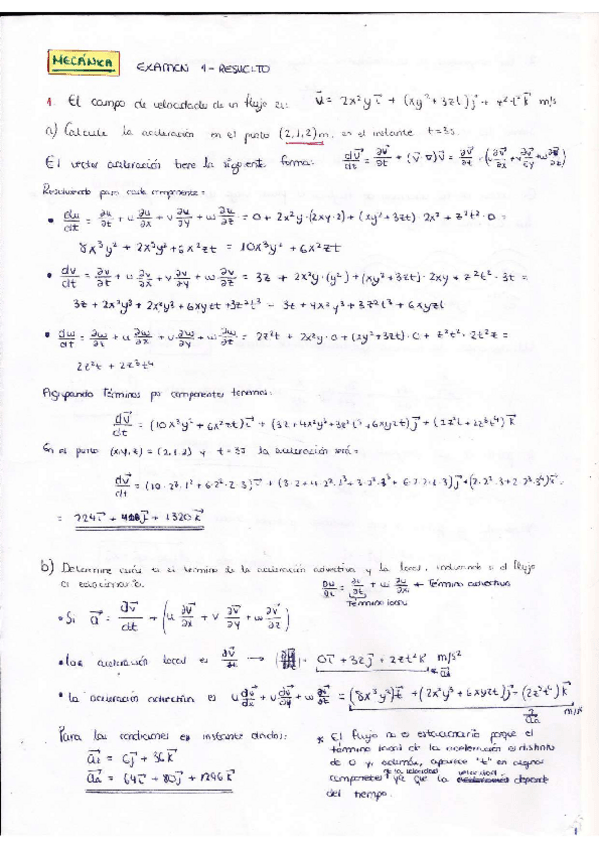 MECÁNICA EXAMEN 1 - RESUELTO
1. El campo de velocidades de un flujo es: v⃗ = 2x²y i⃗ + (xy² + 3zt) j⃗ + z²t² k⃗ m/s
a) Calcule la aceleración en el punto (2,1,2)m, en el instante t=3s.
El vector aceleración tiene la siguiente forma: dv⃗/dt = ∂v⃗/∂t + (v⃗·∇)v⃗ = ∂v⃗/∂t + (u ∂v⃗/∂x + v ∂v⃗/∂y + w ∂v⃗/∂z)
para cada componente:
• du/dt = ∂u/∂t + u ∂u/∂x + v ∂u/∂y + w ∂u/∂z = 0 + 2x²y·(2xy·2) + (xy² + 3zt)·2x² + z²t²·0 =
8x³y² + 2x³y² + 6x²zt = 10x³y² + 6x²zt
• dv/dt = ∂v/∂t + u ∂v/∂x + v ∂v/∂y + w ∂v/∂z = 3z + 2x²y·(y²) + (xy² + 3zt)·2xy + z²t²·3t =
3z + 2x²y³ + 2x²y³ + 6xyzt + 3z²t³ = 3z + 4x²y³ + 3z²t³ + 6xyzt
• dw/dt = ∂w/∂t + u ∂w/∂x + v ∂w/∂y + w ∂w/∂z = 2z²t + 2x²y·0 + (xy² + 3zt)·0 + z²t²·2t²z =
2z²t + 2z³t⁴
Agrupando términos por componentes tenemos:
dv⃗/dt = (10x³y² + 6x²zt) i⃗ + (3z + 4x²y³ + 3z²t³ + 6xyzt) j⃗ + (2z²t + 2z³t⁴) k⃗
En el punto (x,y,z) = (2,1,2) y t = 3s la aceleración será:
dv⃗/dt = (10·2³·1² + 6·2²·2·3) i⃗ + (3·2 + 4·2²·1³ + 3·2²·3³ + 6·2·1·2·3) j⃗ + (2·2²·3 + 2·2³·3⁴) k⃗ =
= 224 i⃗ + 418 j⃗ + 1320 k⃗
b) Determine cuál es el término de la aceleración advectiva y la local, indicando si el flujo
es estacionario.
Término local
Término advectivo
• Si a⃗ = dv⃗/dt + (u ∂v⃗/∂x + v ∂v⃗/∂y + w ∂v⃗/∂z)
• la aceleración local es 0 i⃗ + 3z j⃗ + 2zt² k⃗ m/s²
• la aceleración advectiva es (8x³y²) i⃗ + (2x²y³ + 6xyzt) j⃗ + (2z³t⁴) k⃗ m/s²
Para las condiciones e instante dados:
a⃗l = 6 j⃗ + 36 k⃗
a⃗a = 64 i⃗ + 80 j⃗ + 1296 k⃗
* El flujo no es estacionario porque el
término local de la aceleración es distinto
de 0 y, además, aparece "t" en algunas
componentes de la velocidad ya que la velocidad depende
del tiempo.
1